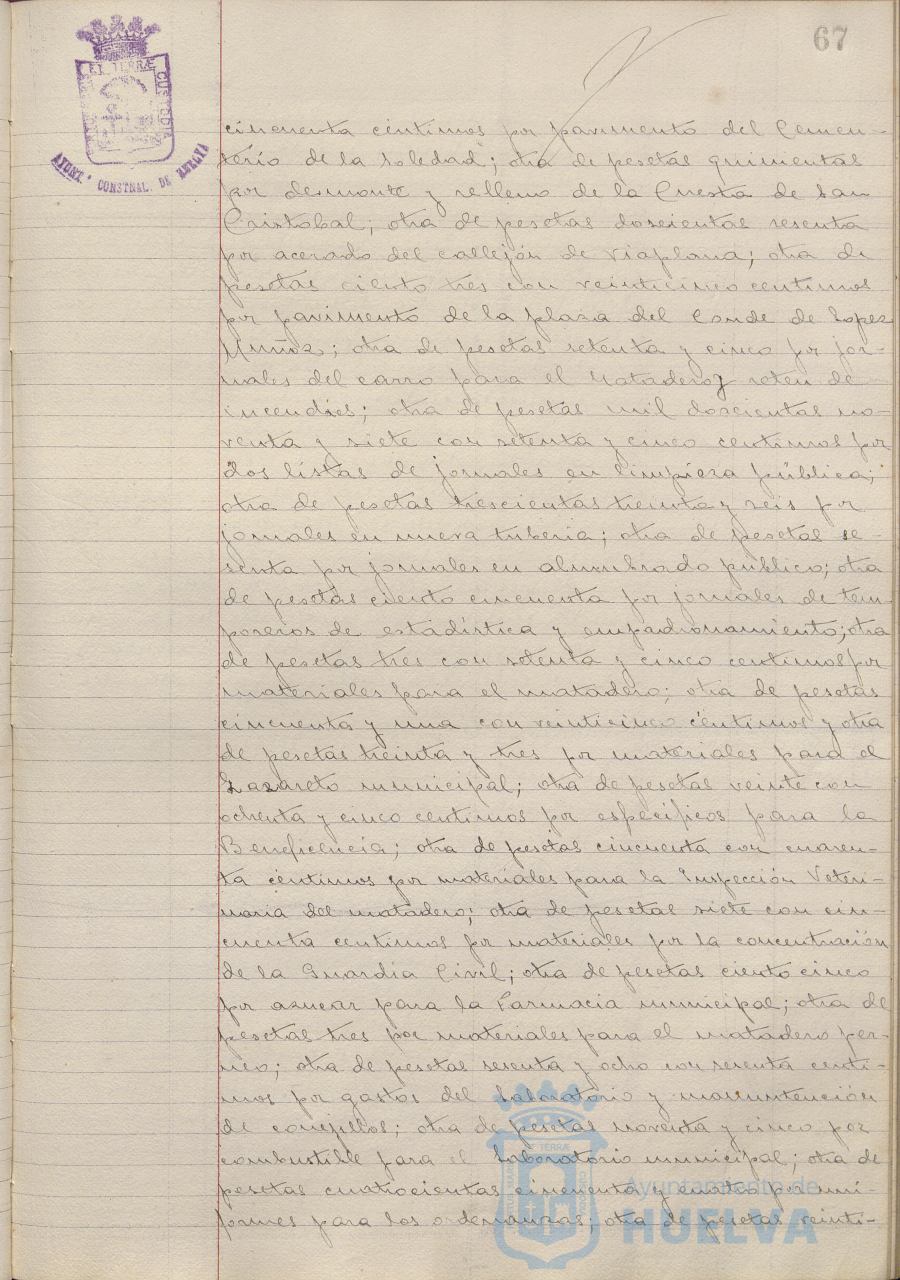 67
PORTUS MARIS ET TERRÆ CUSTODIA
AYUNT.º CONSTNAL. DE HUELVA
cincuenta céntimos por pavimento del Cemen-
terio de la Soledad; otra de pesetas quinientas
por desmonte y relleno de la Cuesta de San
Cristobal; otra de pesetas doscientas sesenta
por acerado del callejón de Viaplana; otra de
pesetas ciento tres con veinticinco centimos
por pavimento de la plaza del Conde de Lopez
Muñoz; otra de pesetas setenta y cinco por jor-
nales del carro para el Matadero y reten de
incendios; otra de pesetas mil doscientas no-
venta y siete con setenta y cinco centimos por
dos listas de jornales en limpieza pública;
otra de pesetas trescientas treinta y seis por
jornales en nueva tuberia; otra de pesetas se-
senta por jornales en alumbrado público; otra
de pesetas ciento cincuenta por jornales de tem-
poreros de estadística y empadronamiento; otra
de pesetas tres con setenta y cinco centimos por
materiales para el matadero; otra de pesetas
cincuenta y una con veinticinco céntimos y otra
de pesetas treinta y tres por materiales para el
Lazareto municipal; otra de pesetas veinte con
ochenta y cinco centimos por especificos para la
Beneficencia; otra de pesetas cincuenta con cuaren-
ta céntimos por materiales para la Inspección Veteri-
naria del matadero; otra de pesetas siete con cin-
cuenta centimos por materiales por la concentración
de la Guardia Civil; otra de pesetas ciento cinco
por azucar para la Farmacia municipal; otra de
pesetas tres por materiales para el matadero per-
neo; otra de pesetas sesenta y ocho con sesenta centi-
mos por gastos del Laboratorio y manuntención
de conejillos; otra de pesetas noventa y cinco por
combustible para el Laboratorio municipal; otra de
pesetas cuatrocientas cincuenta y cuatro por uni-
formes para los ordenanzas; otra de pesetas veinti-
Ayuntamiento de
HUELVA